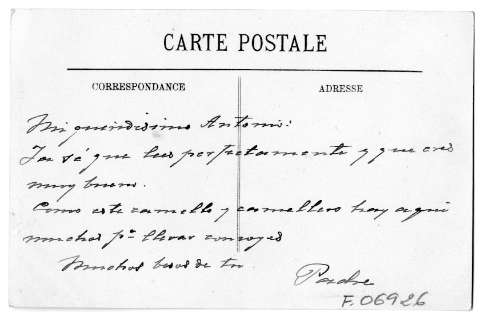 CARTE POSTALE
CORRESPONDANCE
ADRESSE
Mi queridisimo Antonio:
Ya sé que lees perfectamente y que eres
muy bueno.
Como este camello y camellero hay aqui
muchos pa llevar convoyes
Muchos besos de tu
Padre
F.06926